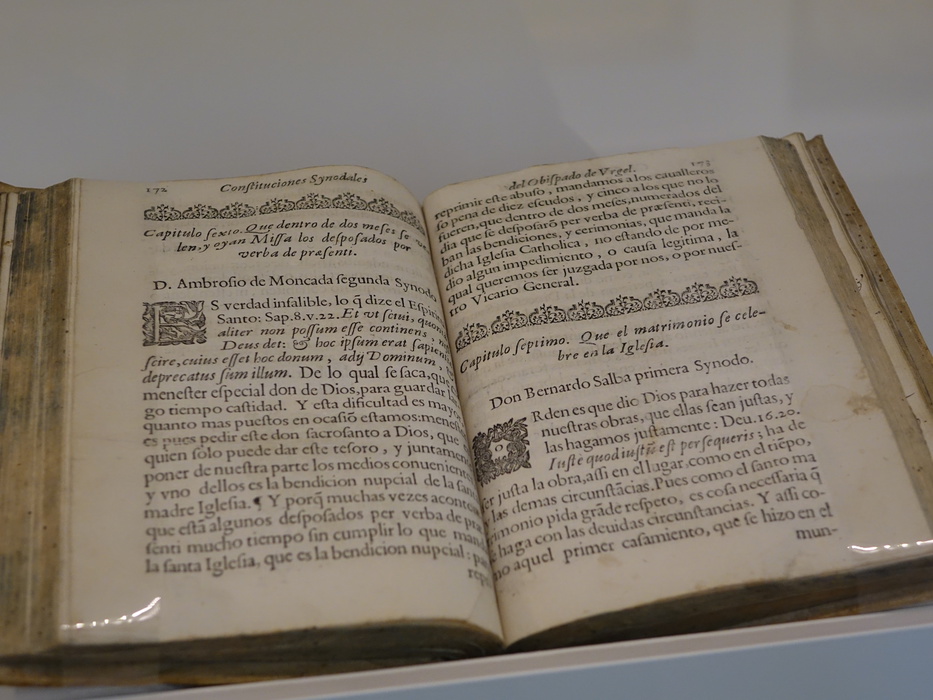 172
Constituciones Synodales
Capitulo sexto. Que dentro de dos meses se ve-
len, y oyan Missa los desposados por
verba de præsenti.
D. Ambrosio de Moncada segunda Synodo
ES verdad infalible, lo q̃ dize el Espiritu
Santo: Sap. 8. v. 22. Et vt sciui, quoniam
aliter non possum esse continens,
Deus det: & hoc ipsum erat sapien
scire, cuius esset hoc donum, adij Dominum,
deprecatus sum illum. De lo qual se saca, que
menester especial don de Dios, para guardar
go tiempo castidad. Y esta dificultad es mayo
quanto mas puestos en ocasiõ estamos: menes
es pues pedir este don sacrosanto a Dios, que
quien solo puede dar este tesoro, y juntamen
poner de nuestra parte los medios conuenien
y vno dellos es la bendicion nupcial de la san
madre Iglesia. ¶ Y porq̃ muchas vezes aconte
que estã algunos desposados per verba de præ
senti mucho tiempo sin cumplir lo que man
la santa Iglesia, que es la bendicion nupcial: pa
repri
del Obispado de Vrgel.
173
reprimir este abuso, mandamos a los caualleros
so pena de diez escudos, y cinco a los que no lo
fueren, que dentro de dos meses, numerados del
dia que se desposarõ per verba de præsenti, reci-
ban las bendiciones, y cerimonias, que manda la
dicha Iglesia Catholica, no estando de por me-
dio algun impedimiento, o causa legitima, la
qual queremos ser juzgada por nos, o por nues-
tro Vicario General.
Capitulo septimo. Que el matrimonio se cele-
bre en la Iglesia.
Don Bernardo Salba primera Synodo.
ORden es que dio Dios para hazer todas
nuestras obras, que ellas sean justas, y
las hagamos justamente: Deu. 16. 20.
Iuste quod iustũ est persequeris; ha de
er justa la obra, assi en el lugar, como en el tiẽpo,
y las demas circunstãcias. Pues como el santo ma
rimonio pida grãde respeto, es cosa necessaria q̃
e haga con las deuidas circunstancias. Y assi co-
mo aquel primer casamiento, que se hizo en el
mun-